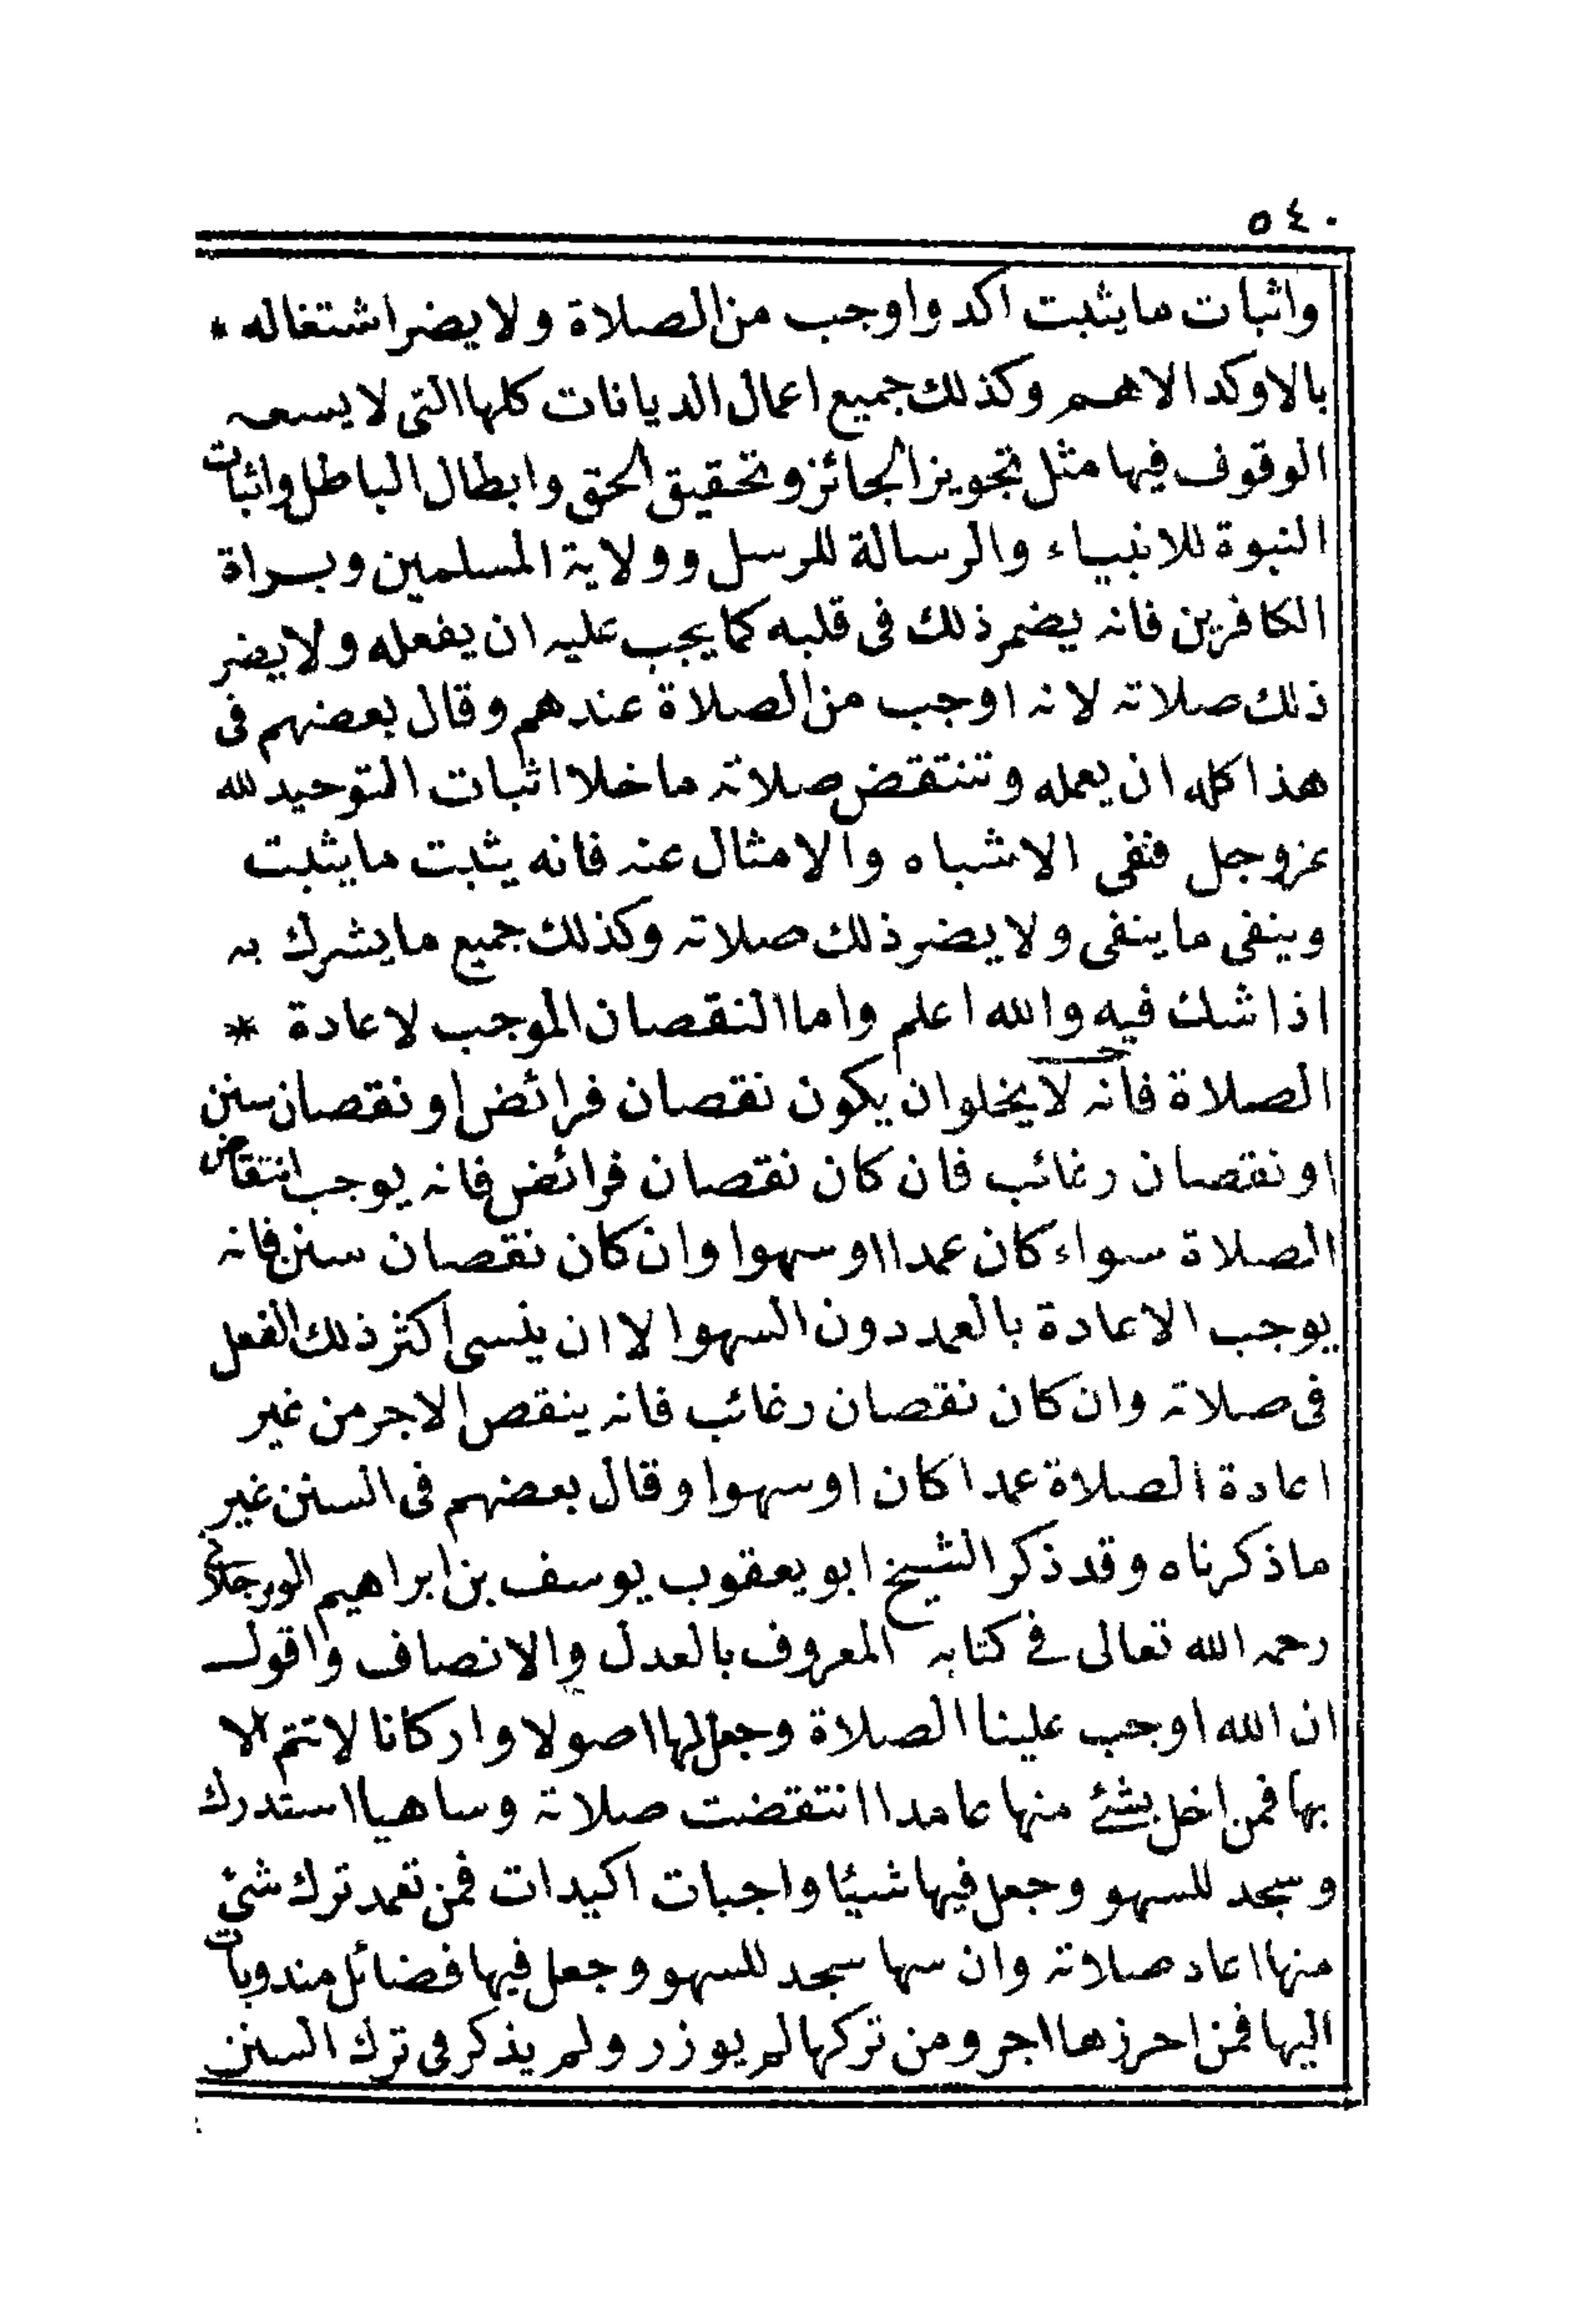 ٥٤٠
واثبات ما يثبت اكد واوجب من الصلاة ولا يضر اشتغاله *
بالاوكد الاهم وكذلك جميع اعمال الديانات كلها التى لا يسعه
الوقوف فيها مثل تجويز الجائز وتحقيق الحق وابطال الباطل واثبات
النبوة للانبياء والرسالة للرسل وولاية المسلمين وبراة
الكافرين فانه يضمر ذلك فى قلبه كما يجب عليه ان يفعله ولا يضر
ذلك صلاته لانه اوجب من الصلاة عندهم وقال بعضهم فى
هذا كله ان يعمله وتنتقض صلاته ما خلا اثبات التوحيد لله
عز وجل فنفى الاشباه والامثال عنه فانه يثبت ما يثبت
وينفى ما ينفى ولا يضر ذلك صلاته وكذلك جميع ما يشرك به
اذا شك فيه والله اعلم واما النقصان الموجب لاعادة *
الصلاة فانه لا يخلو ان يكون نقصان فرائض او نقصان سنن
او نقصان رغائب فان كان نقصان فرائض فانه يوجب انتقاض
الصلاة سواء كان عمدا او سهوا وان كان نقصان سنن فانه
يوجب الاعادة بالعمد دون السهو الا ان ينسى اكثر ذلك الفعل
فى صلاته وان كان نقصان رغائب فانه ينقص الاجر من غير
اعادة الصلاة عمدا كان او سهوا وقال بعضهم فى السنن غير
ما ذكرناه وقد ذكر الشيخ ابو يعقوب يوسف بن ابراهيم الورجلانى
رحمه الله تعالى فى كتابه المعروف بالعدل والانصاف واقول
ان الله اوجب علينا الصلاة وجعل لها اصولا واركانا لا تتم الا
بها فمن اخل بشئ منها عامدا انتقضت صلاته وساهيا استدرك
وسجد للسهو وجعل فيها شيئا واجبات اكيدات فمن تعمد ترك شئ
منها اعاد صلاته وان سها سجد للسهو وجعل فيها فضائل مندوبات
اليها فمن احرزها اجر ومن تركها لم يوزر ولم يذكر فى ترك السنن